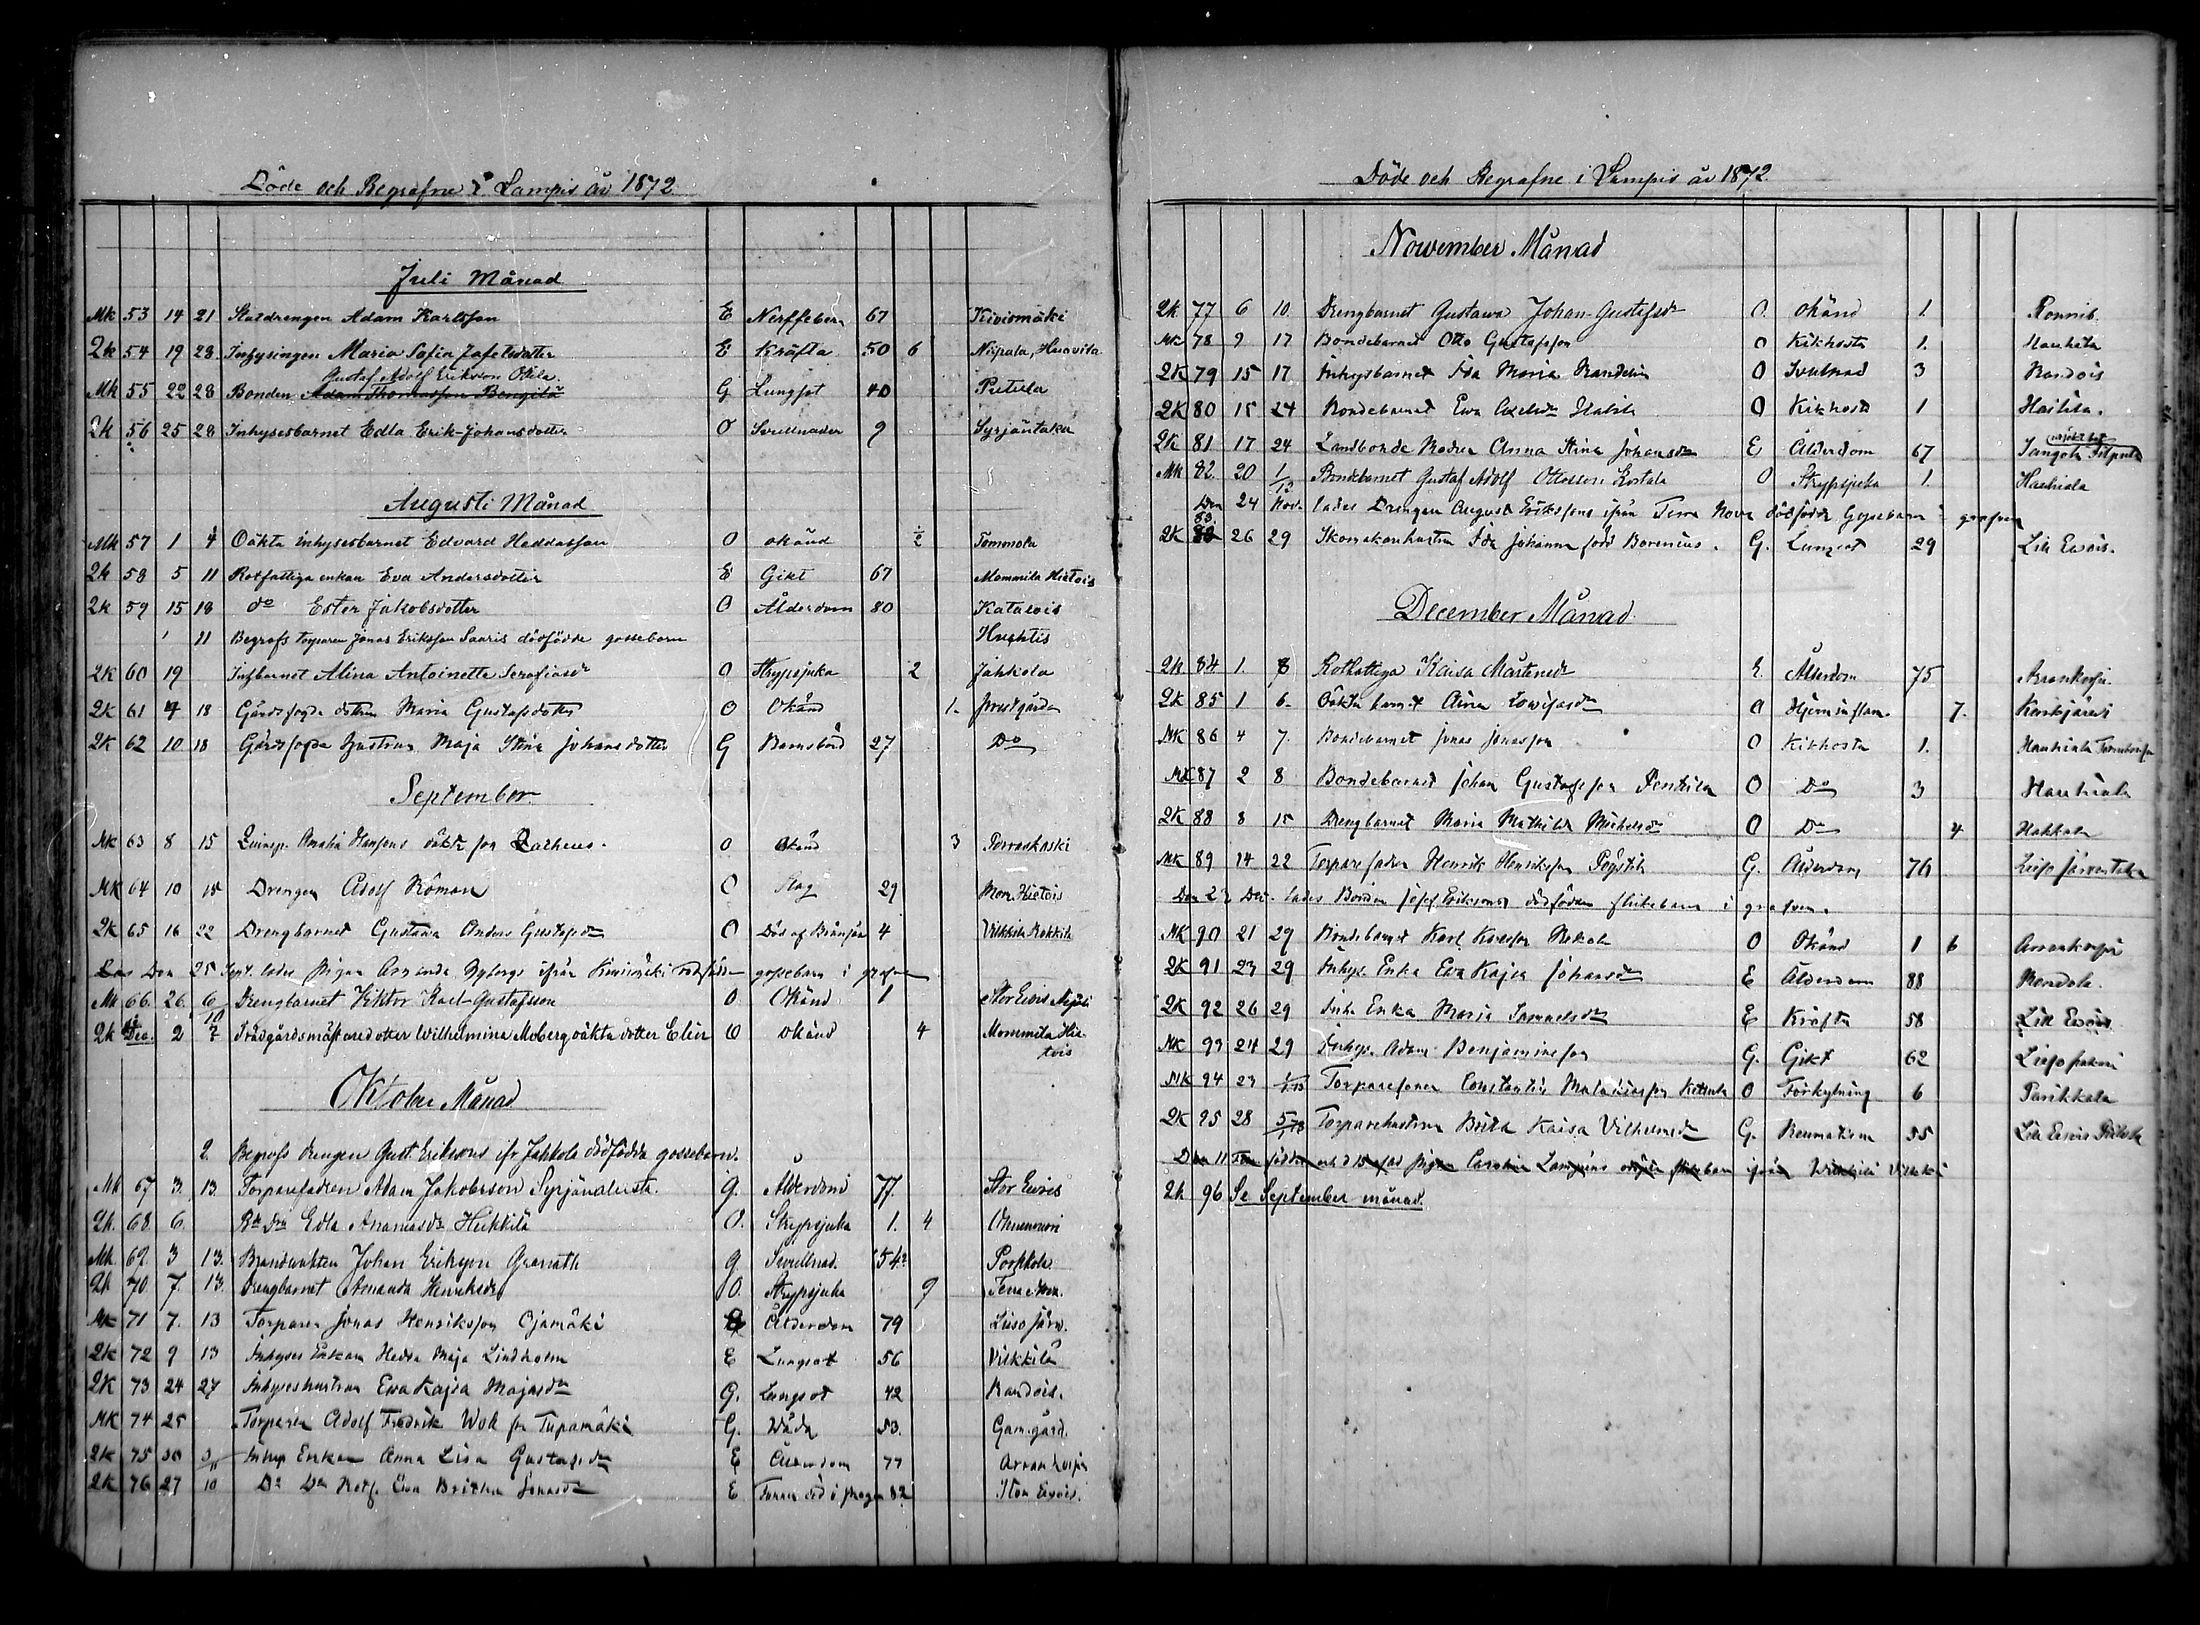 Döde och Begrafne i Lampis år 1872
Juli Månad
Mk 53 14 21 Staldrengen Adam Karlsson E Nerffeber 67 Kivismäki
Qk 54 19 28 Inhysingen Maria Sofia Jafetsdotter E Kräfta 50 6 Nipula, Huovila
Gustaf Adolf Eriksson Okila
Mk 55 22 28 Bonden Adam Thomasson Bengilä G Lungsot 40 Putula
Qk 56 25 28 Inhysesbarnet Edla Erik-Johansdotter O Svullnader 9 Syrjäntaka
Augusti Månad
Mk 57 1 4 Oäkta inhysesbarnet Edvard Heddasson O okänd 1/2 Tommola
Qk 58 5 11 Rotfattiga enkan Eva Andersdotter E Gikt 67 Mommila Hietois
Qk 59 15 18 do Ester Jakobsdotter O Ålderdom 80 Kataløis
11 Begrofs torparen Jonas Eriksson Saaris dödfödde gossebarn Huhtis
Qk 60 19 Inhbarnet Alina Antoinetta Serafiasdr O Strypsjuka 2 Jahkola
Qk 61 4 18 Gårdsfogde dottren Maria Gustafsdotter O Okänd 1. Prestgården
Qk 62 10 18 Gårdsfogde hustrun Maja Stina Johansdotter G Barnsbörd 27 Do
September
Mk 63 8 15 O Okänd 3 Porraskoski
Mk 64 10 15 Drengen Adolf Roman O Slag 29 Mom. Hietois
Qk 65 16 22 Drengbarnet Gustava Anders Gustafsdr O Död af Brånsår 4 Vilkkilä
Den 25 Sept. lades pigan Amanda Nybergs ifrån Kivismäki dödfödda gossebarn i grafven
Mk 66. 26. 6/10 Drengbarnet Viktor Karl-Gustafsson O. Okänd 1 Stor Evois
Qk Dec. 2 7 Trädgårdsmästaredotter Wilhelmina Moberg oäkta dotter Elin O okänd 4 Mommila Hie-
tois
Oktober Månad
2. Begrofs drengen Gust. Eriksons ifr Jahkola dödfödda gossebarn.
Mk 67 3. 13. Torparefadren Adam Jakobsson Syrjänalusta. g. Ålderdom 77. Stor Evois
Qk. 68. 6. Edla Ananiasdr Heikkilä O. Strypsjuka 1. 4
Mk. 69. 3 13. Brandvakten Johan Erikson Granath g. Svullnad. 54 Porkkola
Qk 70 7. 13. Drengbarnet Amanda Henriksdr O. Strypsjuka 9 Terra Nova.
Mk 71 7. 13 Torparen Jonas Henriksson Ojamäki Ålderdom 79 Lieso järv.
Qk 72 9 13 Inhyses Enkan Hedda Maja Lindholm E Lungsot 56 Vilkkilä
Qk 73 24 27 Inhyseshustrun Eva Kajsa Majasdr G. Lungsot 42 Kandois.
Mk 74 25 Torparen Adolf Fredrik Tupamäki G. Våda 53. Gam.gård.
Qk 75 30 Inhys Enkan Anna Lisa Gustafsdr E Ålderdom 77 Arrankorpi
Qk 76 27 10 Do Do Rotf. Eva Britha Jonasdr E Funnen död i skogen 82 Stor Evois.
Döde och Begrafne i Lampis år 1872.
November Månad
Qk 77 6 10. Drengbarnet Gustawa Johan-Gustafsdr O. okänd 1. Ronnib.
Mk 78 9 17 Bondebarnet Otto Gustafsson O Kikhosta 1. Hauhiala
Qk 79 15 17 Inhysbarnet Ida Maria Randelin O Svulnad 3 Kandois
Qk 80 15 24 Bondebarnet Eva Axelsdr O Kikhosta 1
Qk 81 17 24 Landbonde Modren Anna Stina Johansdr E Ålderdom 67
Mk 82. 20 1/12 Bondebarnet Gustaf Adolf Ottosson O Strypsjuka 1. Hauhiala
Den 24 Nov. lades Drengen August Erikssons ifrån Terra Nova dödfödda Gossebarn i grafven
Qk 83. 26 29 Skomakarhustrun Ida Johanna född Borenius. G. Lungsot 29 Lill Evois.
December Månad
Qk 84 1. 8 Rotfattiga Kaisa Mårtensdr E. Ålderdom 75 Arrankorpi.
Qk 85 1 6. Oäkta barnet Aina Lovisasdr O Hjerninflam. 7.
Mk 86 4 7. Bondebarnet Jonas Jonasson O Kikhosta 1. Hauhiala
Mk 87 2 8 Bondebarnet Johan Gustafsson Penttilä O Do 3 Hauhiala
Qk 88 8 15 Drengbarnet Maria Mathilda Michelsdr O Do 4 Hakkala
Mk 89 14 22 Torparefadren Henrik Henriksson G. Ålderdom 76
Den 23 Dec. lades Bonden Josef Eriksons dödfödda flickebarn i grafven.
Mk 90 21 29 Bondebarnet Karl Karlsson O Okänd 1 6 Arrankorpi
Qk 91 23 29 Inhys. Enka Eva Kajsa Johansdr E Ålderdom 88
Qk 92 26 29 Inh. Enka Maria Samuelsdr E Kräfta 58 Lill Evois
Mk 93 24 29 Inhys. Adam Benjaminsson G. Gikt 62
Mk 94 23 Torparesonen Constantin O Förkylning 6 Parikkala
Qk 95 28 5/1 73 Torparehustrun Brita Kaisa Vilhelmsdr G. Reumatism 55 Lill Evois
Qk 96 Se September månad.